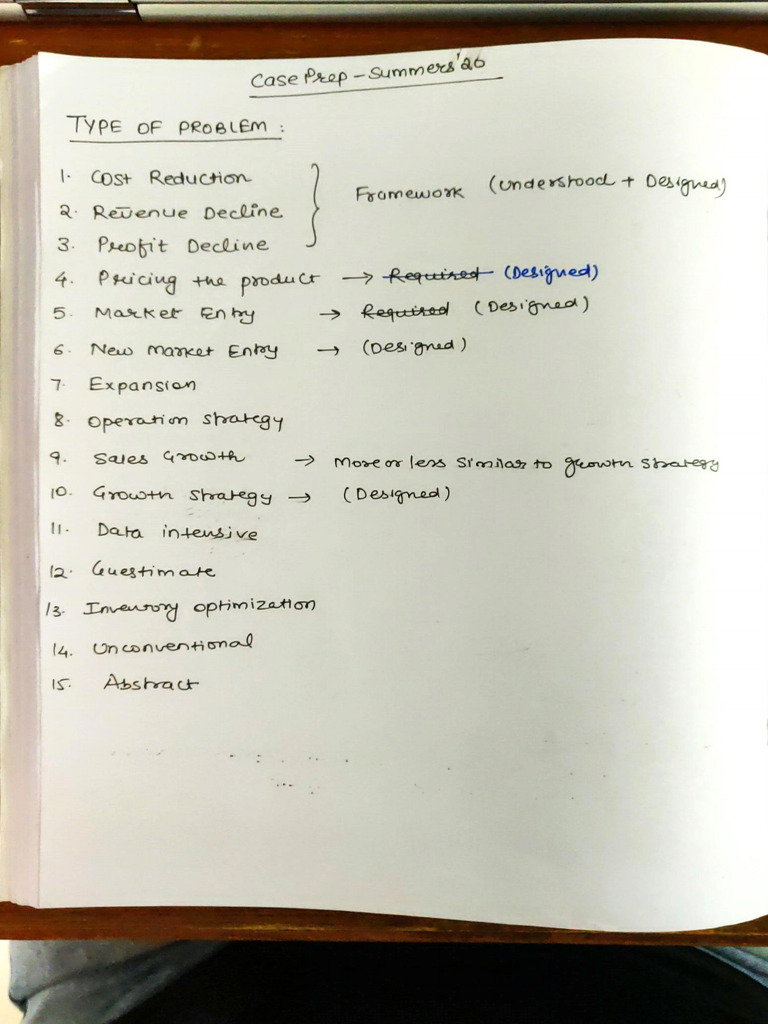 Case Prep – Summers'26
TYPE OF PROBLEM :
1. Cost Reduction
2. Revenue Decline
3. Profit Decline
Framework (Understood + Designed)
4. Pricing the product → Required (Designed)
5. Market Entry → Required (Designed)
6. New Market Entry → (Designed)
7. Expansion
8. Operation strategy
9. Sales Growth → More or less similar to growth strategy
10. Growth strategy → (Designed)
11. Data intensive
12. Guestimate
13. Inventory optimization
14. Unconventional
15. Abstract